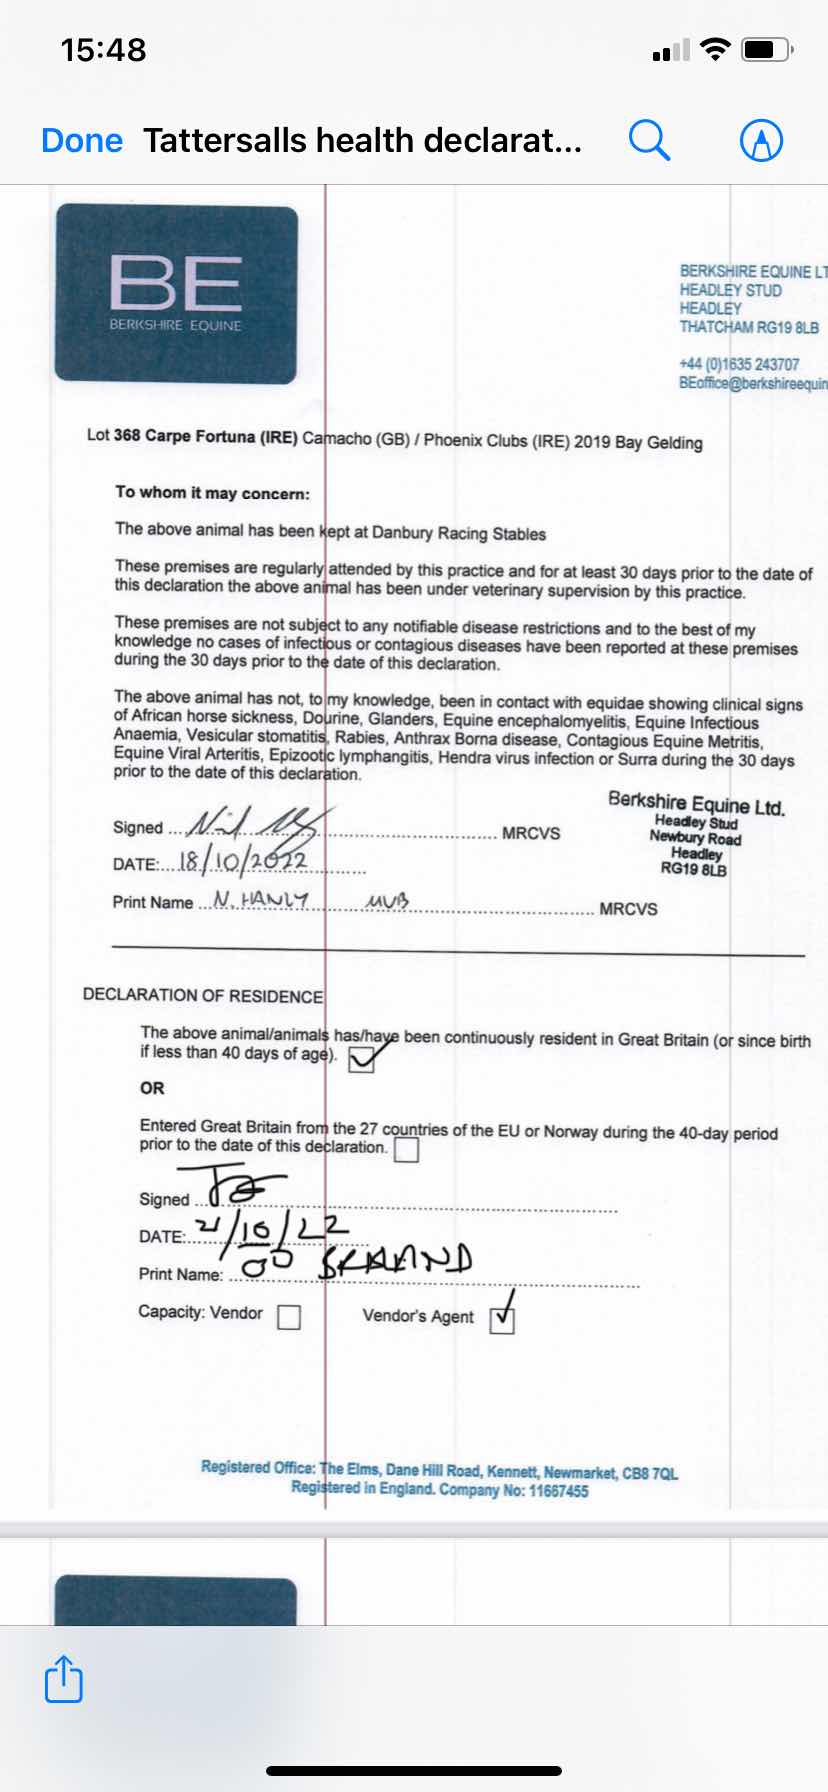 15:48
Done Tattersalls health declarat...
BE
BERKSHIRE EQUINE
BERKSHIRE EQUINE LT
HEADLEY STUD
HEADLEY
THATCHAM RG19 8LB
+44 (0)1635 243707
BEoffice@berkshireequin
Lot 368 Carpe Fortuna (IRE) Camacho (GB) / Phoenix Clubs (IRE) 2019 Bay Gelding
To whom it may concern:
The above animal has been kept at Danbury Racing Stables
These premises are regularly attended by this practice and for at least 30 days prior to the date of
this declaration the above animal has been under veterinary supervision by this practice.
These premises are not subject to any notifiable disease restrictions and to the best of my
knowledge no cases of infectious or contagious diseases have been reported at these premises
during the 30 days prior to the date of this declaration.
The above animal has not, to my knowledge, been in contact with equidae showing clinical signs
of African horse sickness, Dourine, Glanders, Equine encephalomyelitis, Equine Infectious
Anaemia, Vesicular stomatitis, Rabies, Anthrax Borna disease, Contagious Equine Metritis,
Equine Viral Arteritis, Epizootic lymphangitis, Hendra virus infection or Surra during the 30 days
prior to the date of this declaration.
Berkshire Equine Ltd.
Headley Stud
Newbury Road
Headley
RG19 8LB
Signed ... MRCVS
DATE:... 18/10/2022
Print Name ... N. HANLY MVB ... MRCVS
DECLARATION OF RESIDENCE
The above animal/animals has/have been continuously resident in Great Britain (or since birth
if less than 40 days of age).
OR
Entered Great Britain from the 27 countries of the EU or Norway during the 40-day period
prior to the date of this declaration.
Signed
DATE: 21/10/22
Print Name:
Capacity: Vendor Vendor's Agent
Registered Office: The Elms, Dane Hill Road, Kennett, Newmarket, CB8 7QL
Registered in England. Company No: 11667455